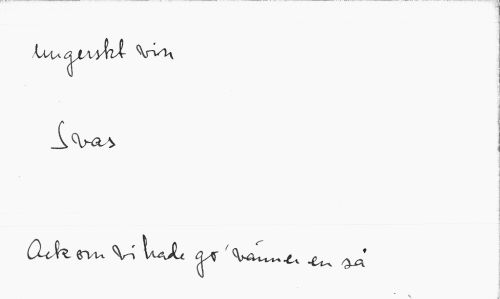 ungerskt vin
Svas
Ack om vi hade go' vänner en så